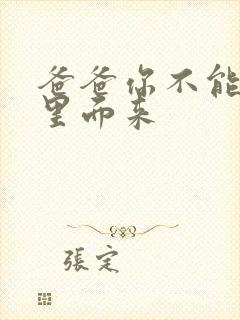 爸爸你不能
里而来
張定